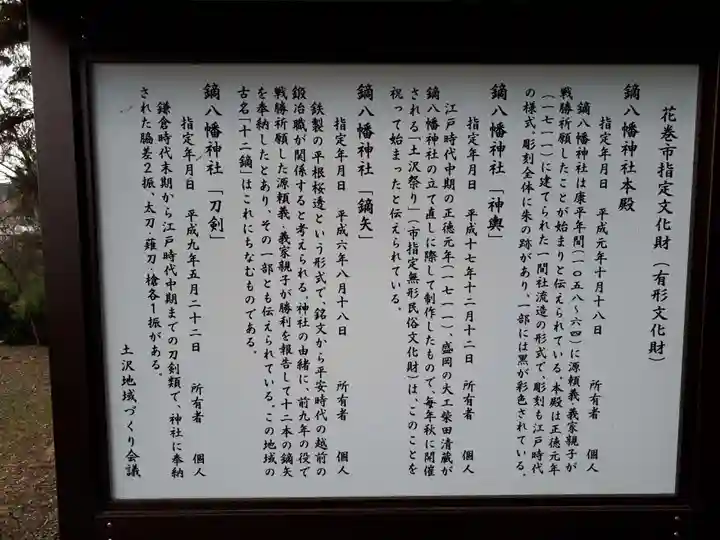 花巻市指定文化財（有形文化財）
鏑八幡神社本殿
指定年月日　平成元年十月十八日　所有者　個人
鏑八幡神社は康平年間（一〇五八～六四）に源頼義・義家親子が
戦勝祈願したことが始まりと伝えられている。本殿は正徳元年
（一七一一）に建てられた一間社流造の形式で、彫刻も江戸時代
の様式、彫刻全体に朱の跡があり、一部には黒が彩色されている。
鏑八幡神社「神輿」
指定年月日　平成十七年十二月十二日　所有者　個人
江戸時代中期の正徳元年（一七一一）、盛岡の大工柴田清蔵が
鏑八幡神社の立て直しに際して制作したもので、毎年秋に開催
される「土沢祭り」（市指定無形民俗文化財）は、このことを
祝って始まったと伝えられている。
鏑八幡神社「鏑矢」
指定年月日　平成六年八月十八日　所有者　個人
鉄製の平根桜透という形式で、銘文から平安時代の越前の
鍛冶職が関係すると考えられる。神社の由緒に、前九年の役で
戦勝祈願した源頼義・義家親子が勝利を報告して十二本の鏑矢
を奉納したとあり、その一部とも伝えられている。この地域の
古名「十二鏑」はこれにちなむものである。
鏑八幡神社「刀剣」
指定年月日　平成九年五月二十二日　所有者　個人
鎌倉時代末期から江戸時代中期までの刀剣類で、神社に奉納
された脇差２振、太刀・薙刀・槍各１振がある。
土沢地域づくり会議